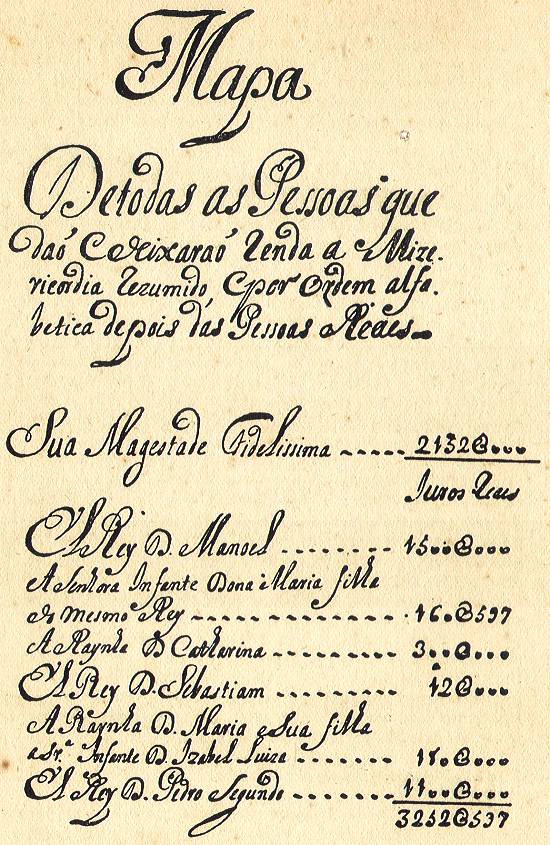 Mapa
Detodas as Pessoas que
daó Edeixaraó Renda a Mize-
ricordia Rezumido, Epor Ordem alfa-
betica depois das Pessoas Reaes
Sua Magestade Fidelissima ..... 2132@000
Juros Reaes
El Rey D. Manoel ........ 1500@000
A Senhora Infante Dona Maria filha
do mesmo Rey ............ 160@597
A Raynha D. Catharina ........ 300@000
El Rey D. Sebastiam ......... 12@000
A Raynha D. Maria e Sua filha
a Sr.ª Infante D. Izabel Luiza .......
El Rey D. Pedro Segundo ........ 1100@000
3252@597